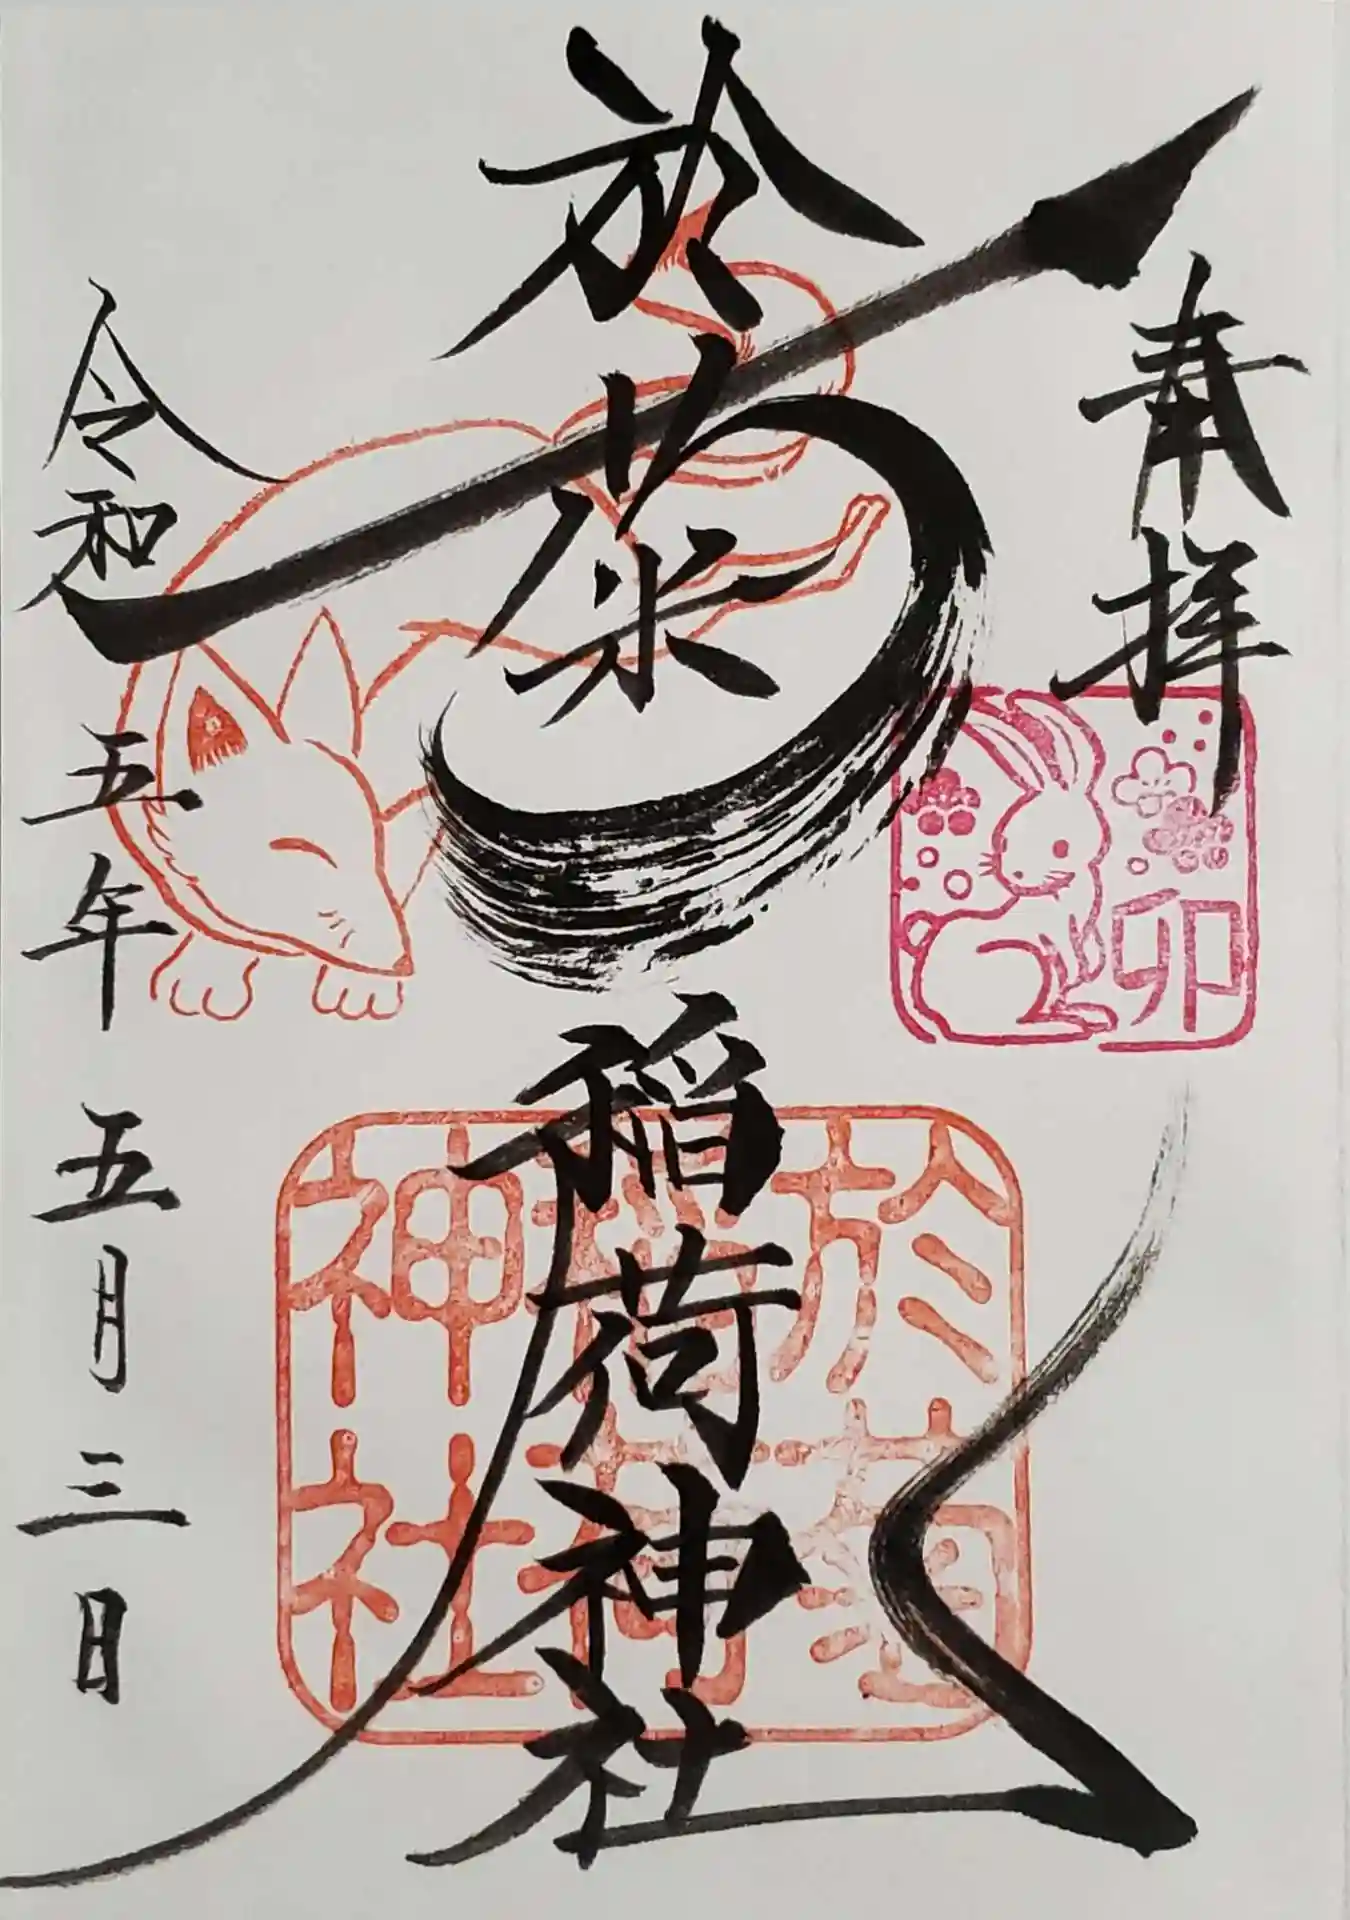 奉拝
卯
於菊稲荷神社
於菊
稲荷
神社
令和五年五月三日